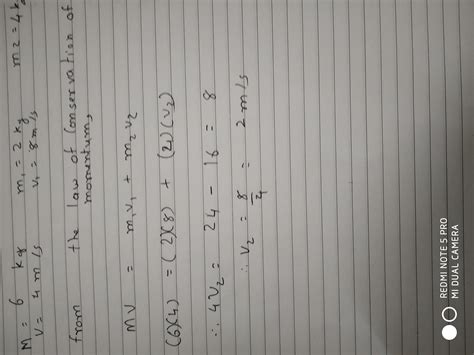 M = 6 kg m₁ = 2 kg m2 = 4k
V = 4 m/s v₁ = 8 m/s
from the law of Conservation of
momentum,
MV = m₁v₁ + m₂v₂
(6)(4) = (2)(8) + (4)(v₂)
∴ 4v₂ = 24 - 16 = 8
∴ v₂ = 8/4 = 2 m/s
REDMI NOTE 5 PRO
MI DUAL CAMERA